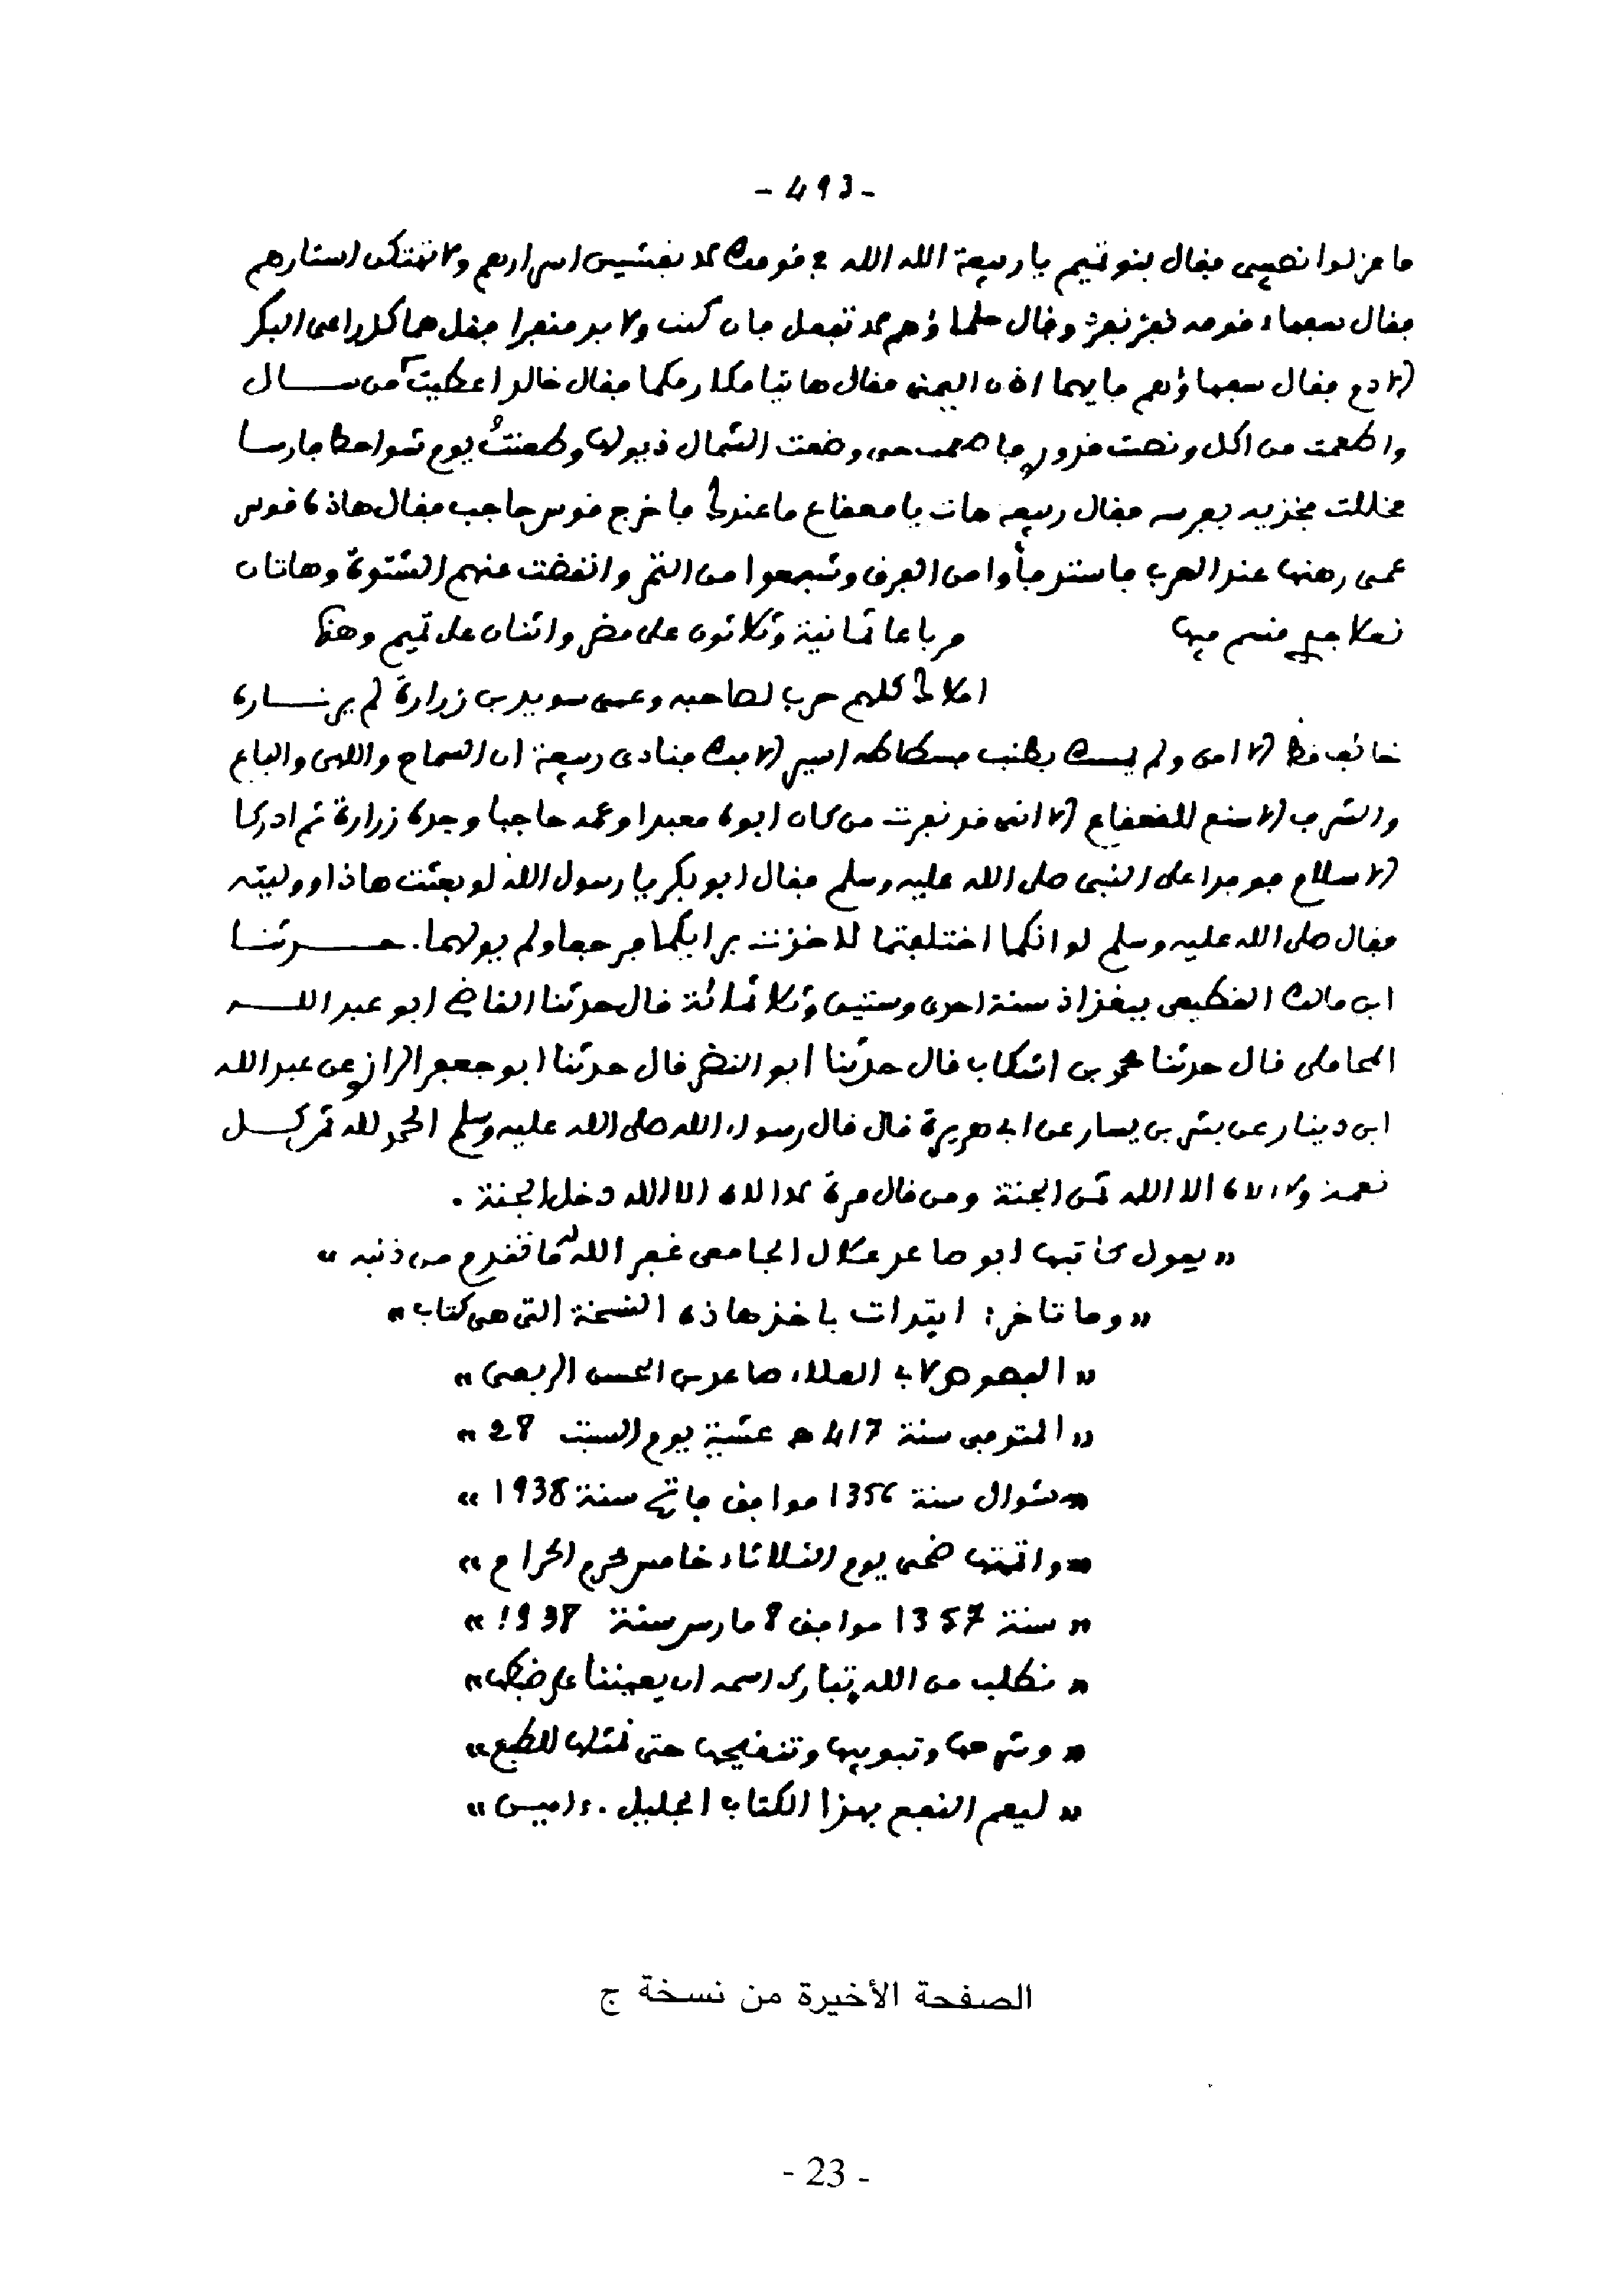 - 493 -
فاعزلوا نصيبى فقال بنو تميم يا ربيعة الله الله فى قومك لا تفشين اسرارهم ولا تهتكن استارهم
فقال سفهاء قومه نفذ نفذ وقال حلماؤهم لا تفعل فان كنت ولا بد منفرا فقل هما كل راعى البكر
الادم فقال سفهاؤهم فايهما اذن اليمن فقال هاتيا مكارمكما فقال خالد اعطيت من سال
واطعمت من اكل ونصبت قدورى فاصمت حين وضعت الشمال ذيولها وطعنت يوم شواحط فارسا
فخللت فخذيه بفرسه فقال ربيعة هات يا قعقاع ما عندك فاخرج قوس حاجب فقال هاذه قوس
عمى رهنها عند العرب فاسترجاوا من الغرف وشبعوا من التمر وانقضت عنهم الشتوة وهاتان
نعلا جدى قسم فيها مرباعا ثمانية وثلاثون على مضر واثنان على تميم وهذا
كلهم حرب لصاحبه وعمى سويد بن زرارة لم ير نـــاره
خائف قط الا امن ولم يمسك بطنب فسطاطه اسير الا فك فنادى ربيعة ان السماح واللهى والباع
والشرف الا منع للقعقاع الا انى قد نفرت من كان ابوه معبدا وعمه حاجبا وجده زرارة ثم ادركا
الاسلام فوفدا على النبى صلى الله عليه وسلم فقال ابو بكر يا رسول الله لو بعثت هاذا ووليته
فقال صلى الله عليه وسلم لو انكما اختلفتما لاخذت برايكما فرجعا ولم يولهما. حـــدثنا
ابن مالك القطيعى ببغداذ سنة احدى وستين وثلاثمائة قال حدثنا القاضى ابو عبد اللــه
المحاملى قال حدثنا محمد بن اشكاب قال حدثنا ابو النضر قال حدثنا ابو جعفر الرازى عن عبد الله
ابن دينار عن بشر بن يسار عن ابى هريرة قال قال رسول الله صلى الله عليه وسلم الحمد لله ثمر كـــل
نعمة ولا الاه الا الله ثمن الجنة ومن قال مرة لا الاه الا الله دخل الجنة .
« يقول كاتبها ابو صاعد علال الجامعى غفر الله له ما تقدم من ذنبه »
« وما تاخر: ابتدات باخذ هاذه النسخة التى هى كتاب »
« الفصوص لابى العلاء صاعد بن الحسن الربعى »
« المتوفى سنة 417 ه عشية يوم السبت 28 »
« شوال سنة 1356 موافق فاتح سنة 1938 »
« واتممتها ضحى يوم الثلاثاء خامس محرم الحرام »
« سنة 1357 موافق 8 مارس سنة 1938 »
« نطلب من الله تبارك اسمه ان يعيننا على ضبطها »
« وشرحها وتبويبها وتنقيحها حتى نمثلها للطبع »
« ليعم النفع بهذا الكتاب الجليل . ءامين »
الصفحة الأخيرة من نسخة ج
- 23 -